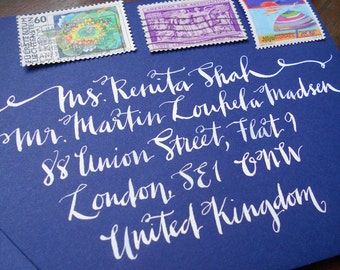 60
Ms. Renita Shah
Mr. Martin Louhela Madsen
88 Union Street, Flat 9
London, SE1 0NW
United Kingdom